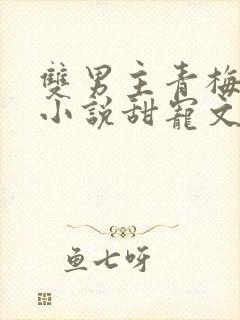 雙男主青梅
小說甜寵文
鱼七呀